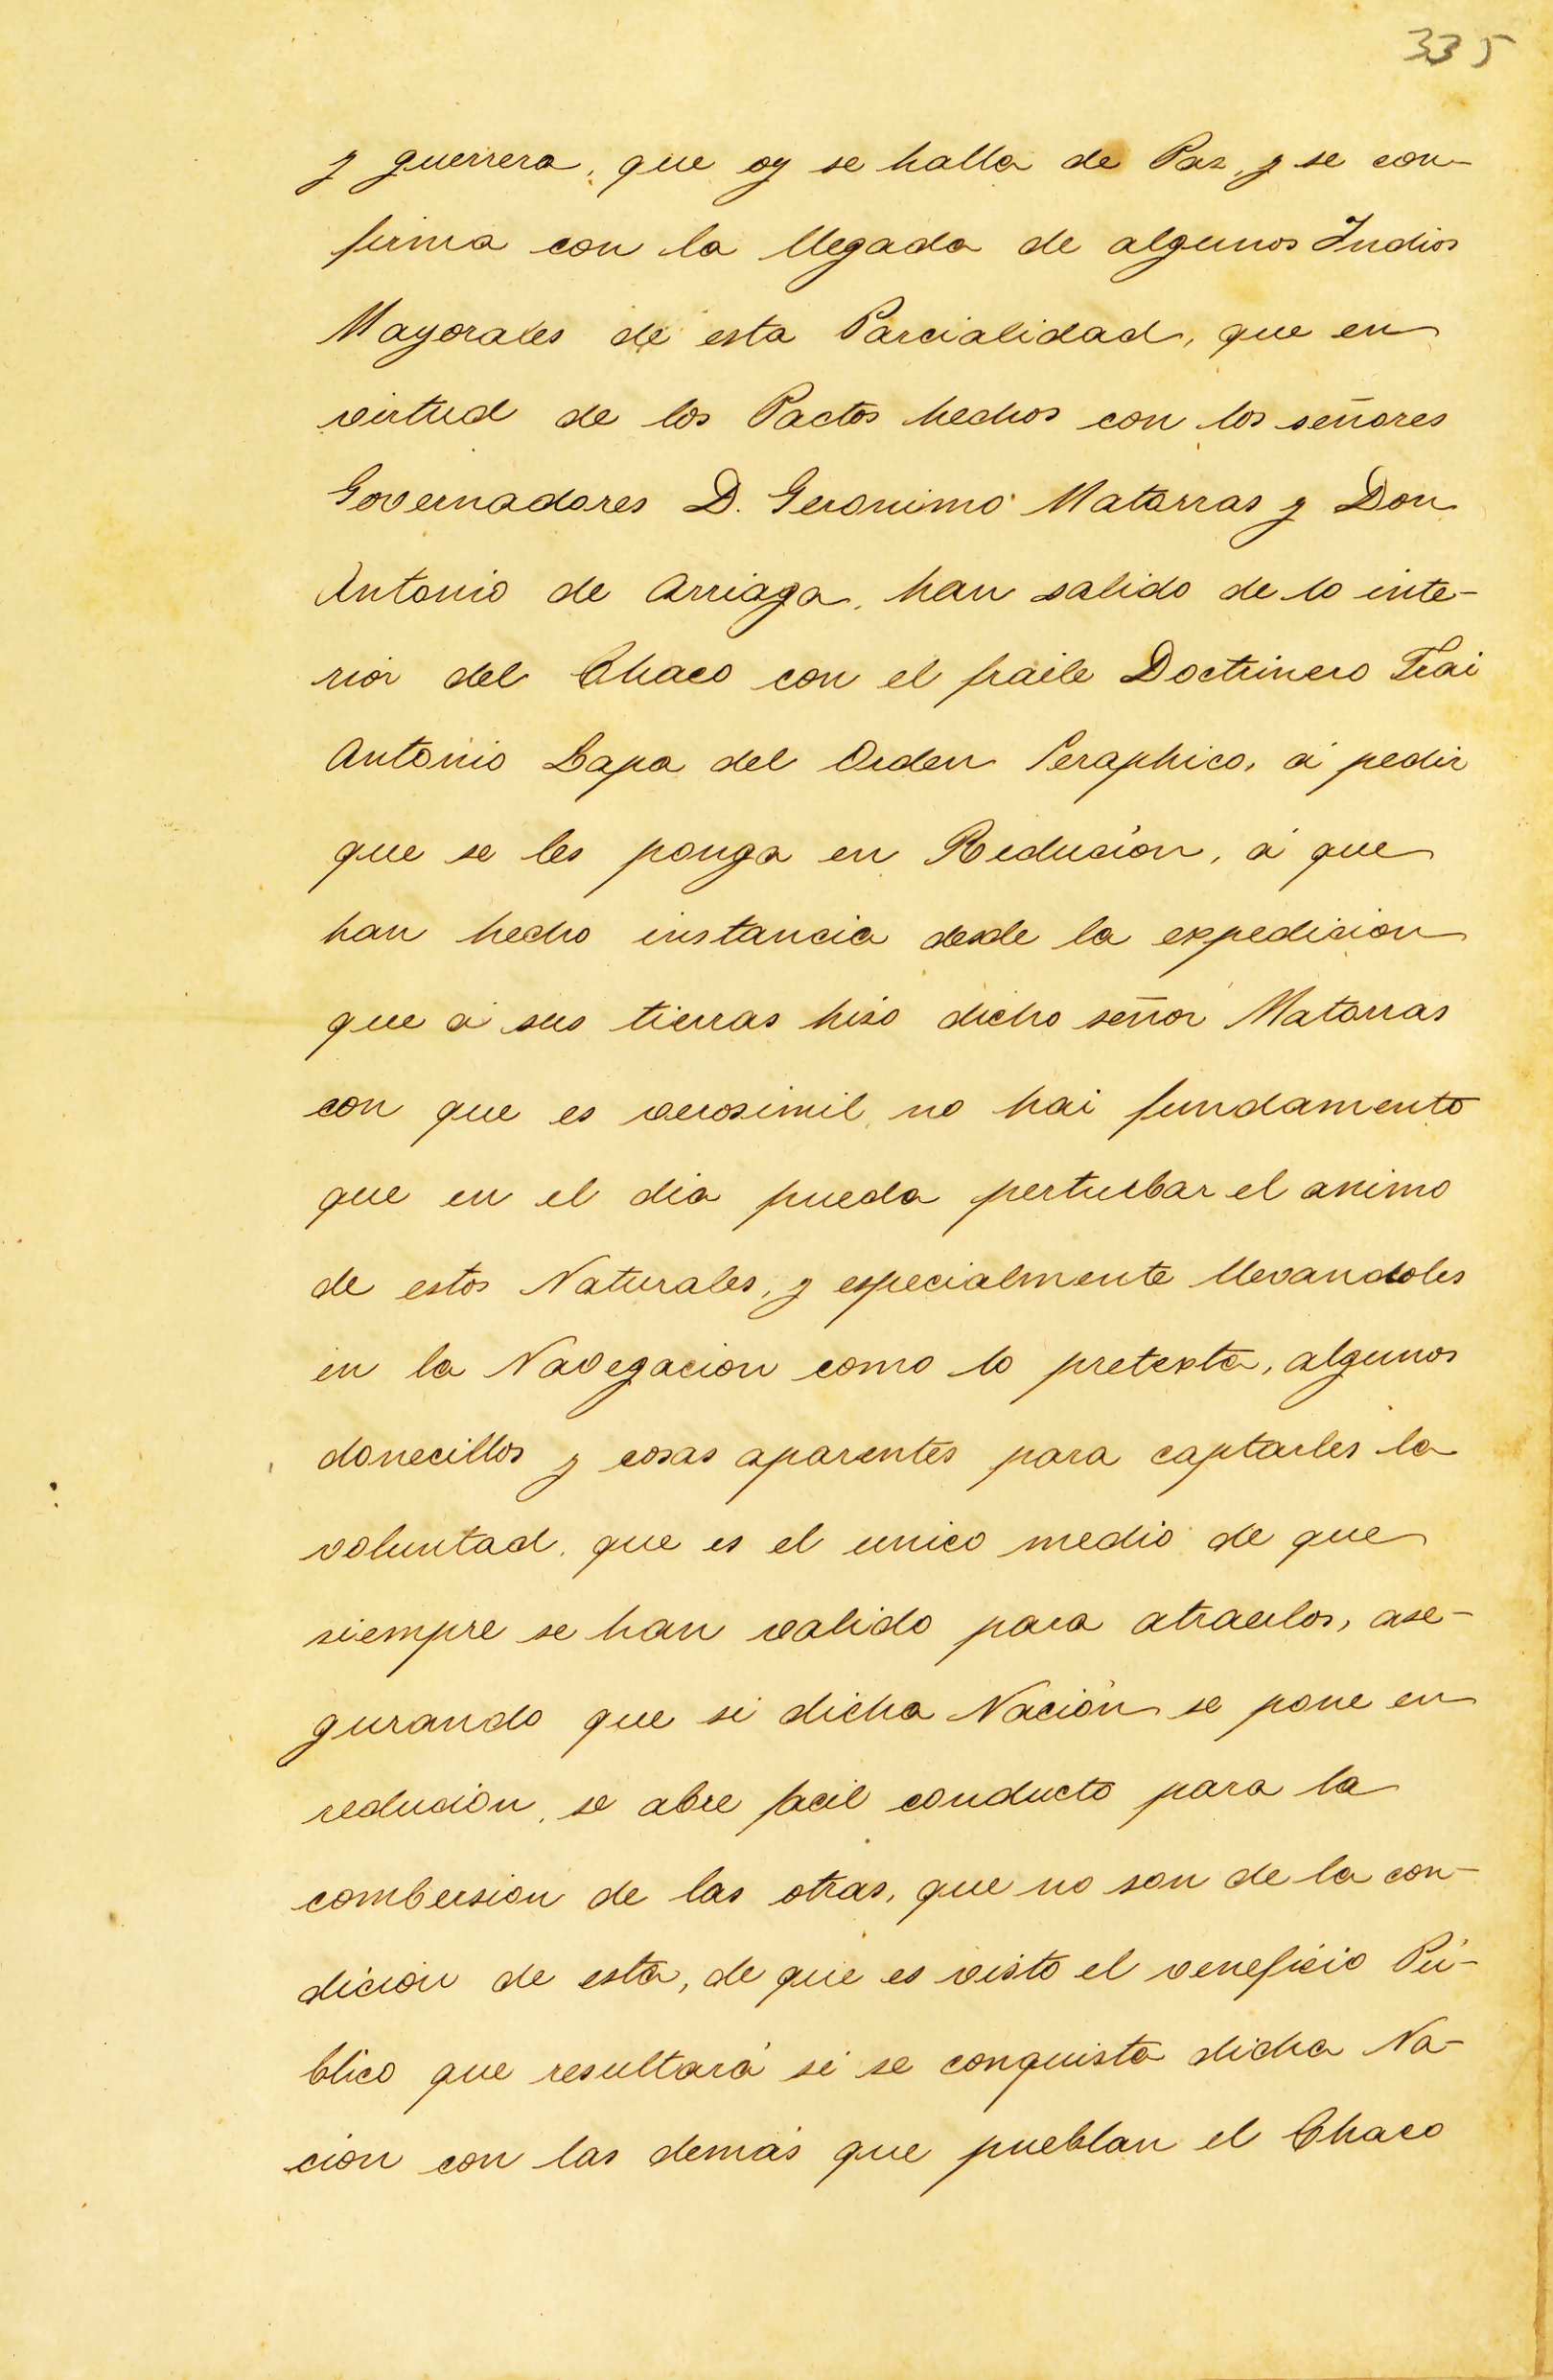 335
y guerrera, que oy se halla de Paz, y se con-
firma con la llegada de algunos Indios
Mayorales de esta Parcialidad, que en
virtud de los Pactos hechos con los señores
Governadores D. Geronimo Matorras y Don
Antonio de Arriaga, han salido de lo inte-
rior del Chaco con el fraile Doctrinero Frai
Antonio Lapa del Orden Seraphico, á pedir
que se les ponga en Reducion, á que
han hecho instancia desde la expedicion
que á sus tierras hiso dicho señor Matorras
con que es verosimil, no hai fundamento
que en el dia pueda perturbar el animo
de estos Naturales, y especialmente llevandoles
en la Navegacion como lo pretexta, algunos
donecillos y cosas aparentes para captarles la
voluntad, que es el unico medio de que
siempre se han valido para atraerlos, ase-
gurando que si dicha Nación se pone en
reducion, se abre facil conducto para la
combersion de las otras, que no son de la con-
dicion de esta, de que es visto el veneficio Pú-
blico que resultará si se conquista dicha Na-
cion con las demás que pueblan el Chaco